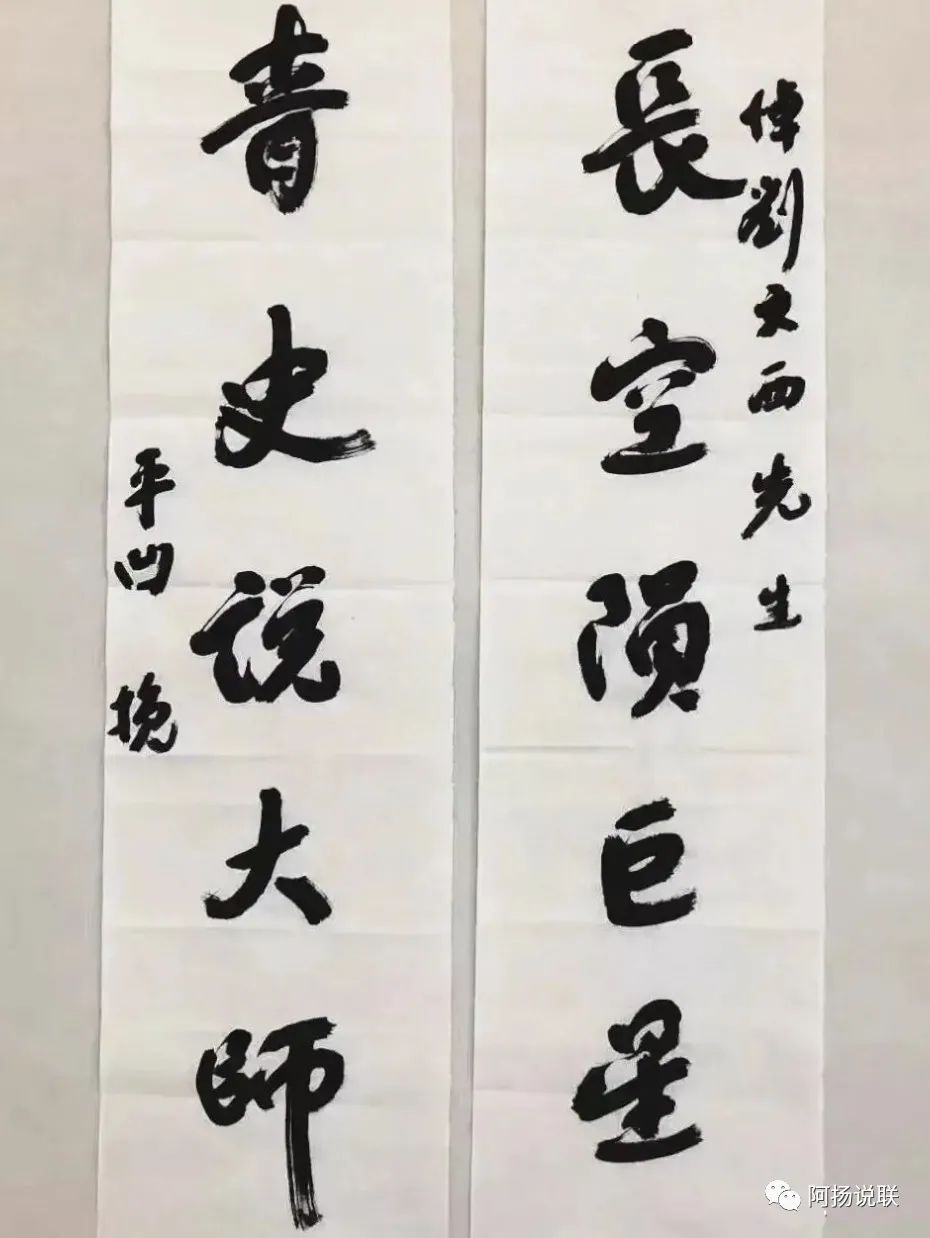 悼劉文西先生
長空陨巨星
青史説大師
平凹 挽
阿扬说联